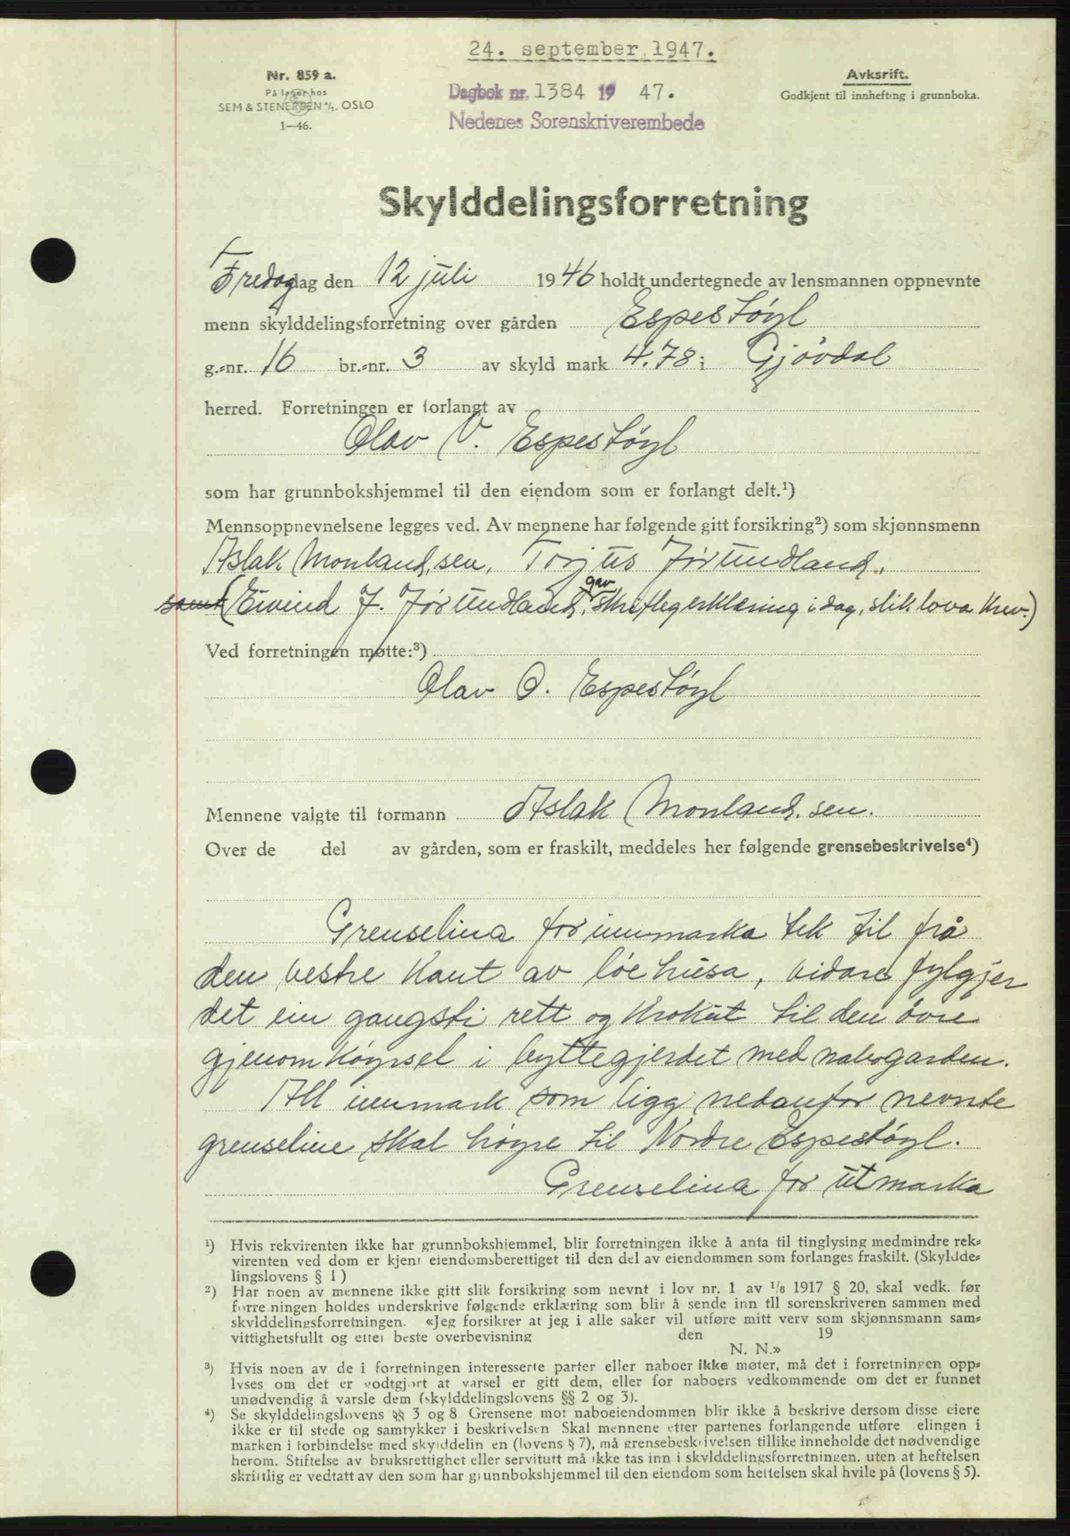 24. september 1947.
Nr. 859 a.
På lager hos
SEM & STENERSEN A/S. OSLO
1-46.
Dagbok nr. 1384 19 47.
Nedenes Sorenskriverembede
Avksrift.
Godkjent til innhefting i grunnboka.
Skylddelingsforretning
Fredag dag den 12 juli 1946 holdt undertegnede av lensmannen oppnevnte
menn skylddelingsforretning over gården Espestøyl
g.-nr. 16 br.-nr. 3 av skyld mark 4.78 i Gjøvdal
herred. Forretningen er forlangt av
Olav V. Espestøyl
som har grunnbokshjemmel til den eiendom som er forlangt delt.¹)
Mennsoppnevnelsene legges ved. Av mennene har følgende gitt forsikring²) som skjønnsmenn
Aslak Monland, sen, Torjus Jørundland,
samt (Eivind J. Jørundland, gav skrifleg erklæring i dag, slik lova krev.)
Ved forretningen møtte:³)
Olav O. Espestøyl
Mennene valgte til formann Aslak Monland. sen.
Over de del av gården, som er fraskilt, meddeles her følgende grensebeskrivelse⁴)
Grenselina for innmarka tek til frå
den vestre kant av løehusa, vidare fylgjer
det ein gangsti rett og krokut til den øvre
gjenomkøyrsel i byttegjerdet med nabogarden.
All innmark som ligg nedanfor nevnte
grenseline skal høyre til Nordre Espestøyl.
Grenselina for utmarka
¹) Hvis rekvirenten ikke har grunnbokshjemmel, blir forretningen ikke å anta til tinglysing medmindre rek-
virenten ved dom er kjent eiendomsberettiget til den del av eiendommen som forlanges fraskilt. (Skyldde-
lingslovens § 1)
²) Har noen av mennene ikke gitt slik forsikring som nevnt i lov nr. 1 av 1/6 1917 § 20, skal vedk. før
forretningen holdes underskrive følgende erklæring som blir å sende inn til sorenskriveren sammen med
skylddelingsforretningen. «Jeg forsikrer at jeg i alle saker vil utføre mitt verv som skjønnsmann sam-
vittighetsfullt og etter beste overbevisning den 19
N. N.»
³) Hvis noen av de i forretningen interesserte parter eller naboer ikke møter, må det i forretningen opp-
lyses om det er godtgjort at varsel er gitt dem, eller for naboers vedkommende om det er funnet
unødvendig å varsle dem (skylddelingslovens §§ 2 og 3).
⁴) Se skylddelingslovens §§ 3 og 8 Grensene mot naboeiendommen blir ikke å beskrive dersom disse eiere
ikke er til stede og samtykker i beskrivelsen Skal mennene etter partenes forlangende utføre elingen i
marken i forbindelse med skylddelin en (lovens § 7), må grensebeskrivelsen tillike inneholde det nødvendige
herom. Stiftelse av bruksrettighet eller servitutt må ikke tas inn i skylddelingsforretningen, uten at heftelsen
skriftlig er vedtatt av den som har grunnbokshjemmel til den eiendom som heftelsen skal hvile på (lovens § 5).